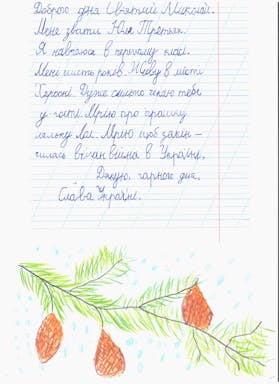 Доброго дня Святий Миколай.
Мене звати Юля Третяк.
Я навчаюсь в першому класі.
Мені шість років. Живу в місті
Херсоні. Дуже сильно чекаю тебе
у гості. Мрію про іграшку
ляльку Лол. Мрію щоб закін-
чилась війна в Україні.
Дякую, гарного дня.
Слава Україні.